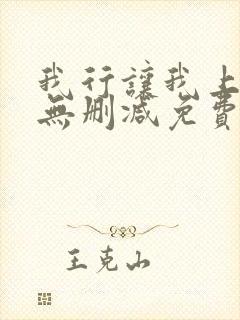 我行讓我上
無刪減免費
王克山